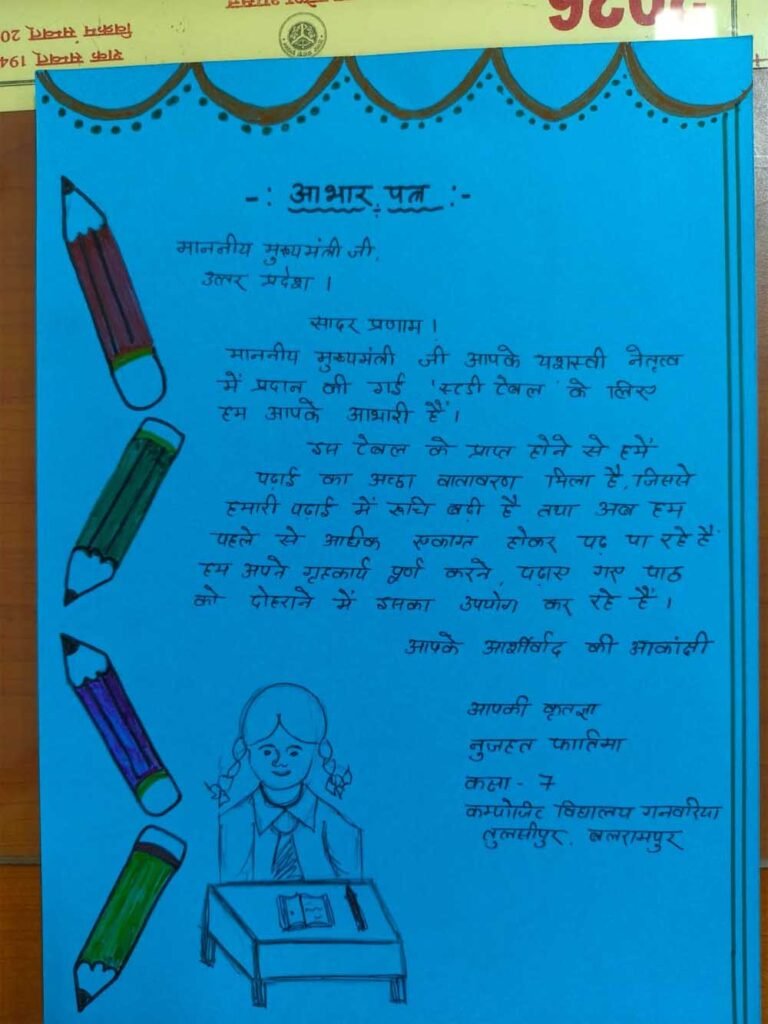 शक सम्वत् 194
विक्रम सम्वत् 20
2026
-: आभार पत्र :-
माननीय मुख्यमंत्री जी,
उत्तर प्रदेश ।
सादर प्रणाम ।
माननीय मुख्यमंत्री जी आपके यशस्वी नेतृत्व
में प्रदान की गई 'स्टडी टेबल' के लिए
हम आपके आभारी हैं ।
इस टेबल के प्राप्त होने से हमें
पढ़ाई का अच्छा वातावरण मिला है, जिससे
हमारी पढ़ाई में रूचि बढ़ी है तथा अब हम
पहले से अधिक एकाग्र होकर पढ़ पा रहे हैं
हम अपने गृहकार्य पूर्ण करने, पढ़ाए गए पाठ
को दोहराने में इसका उपयोग कर रहे हैं ।
आपके आर्शीवाद की आकांक्षी
आपकी कृतज्ञा
नुजहत फातिमा
कक्षा - 7
कम्पोजिट विद्यालय गनवरिया
तुलसीपुर, बलरामपुर